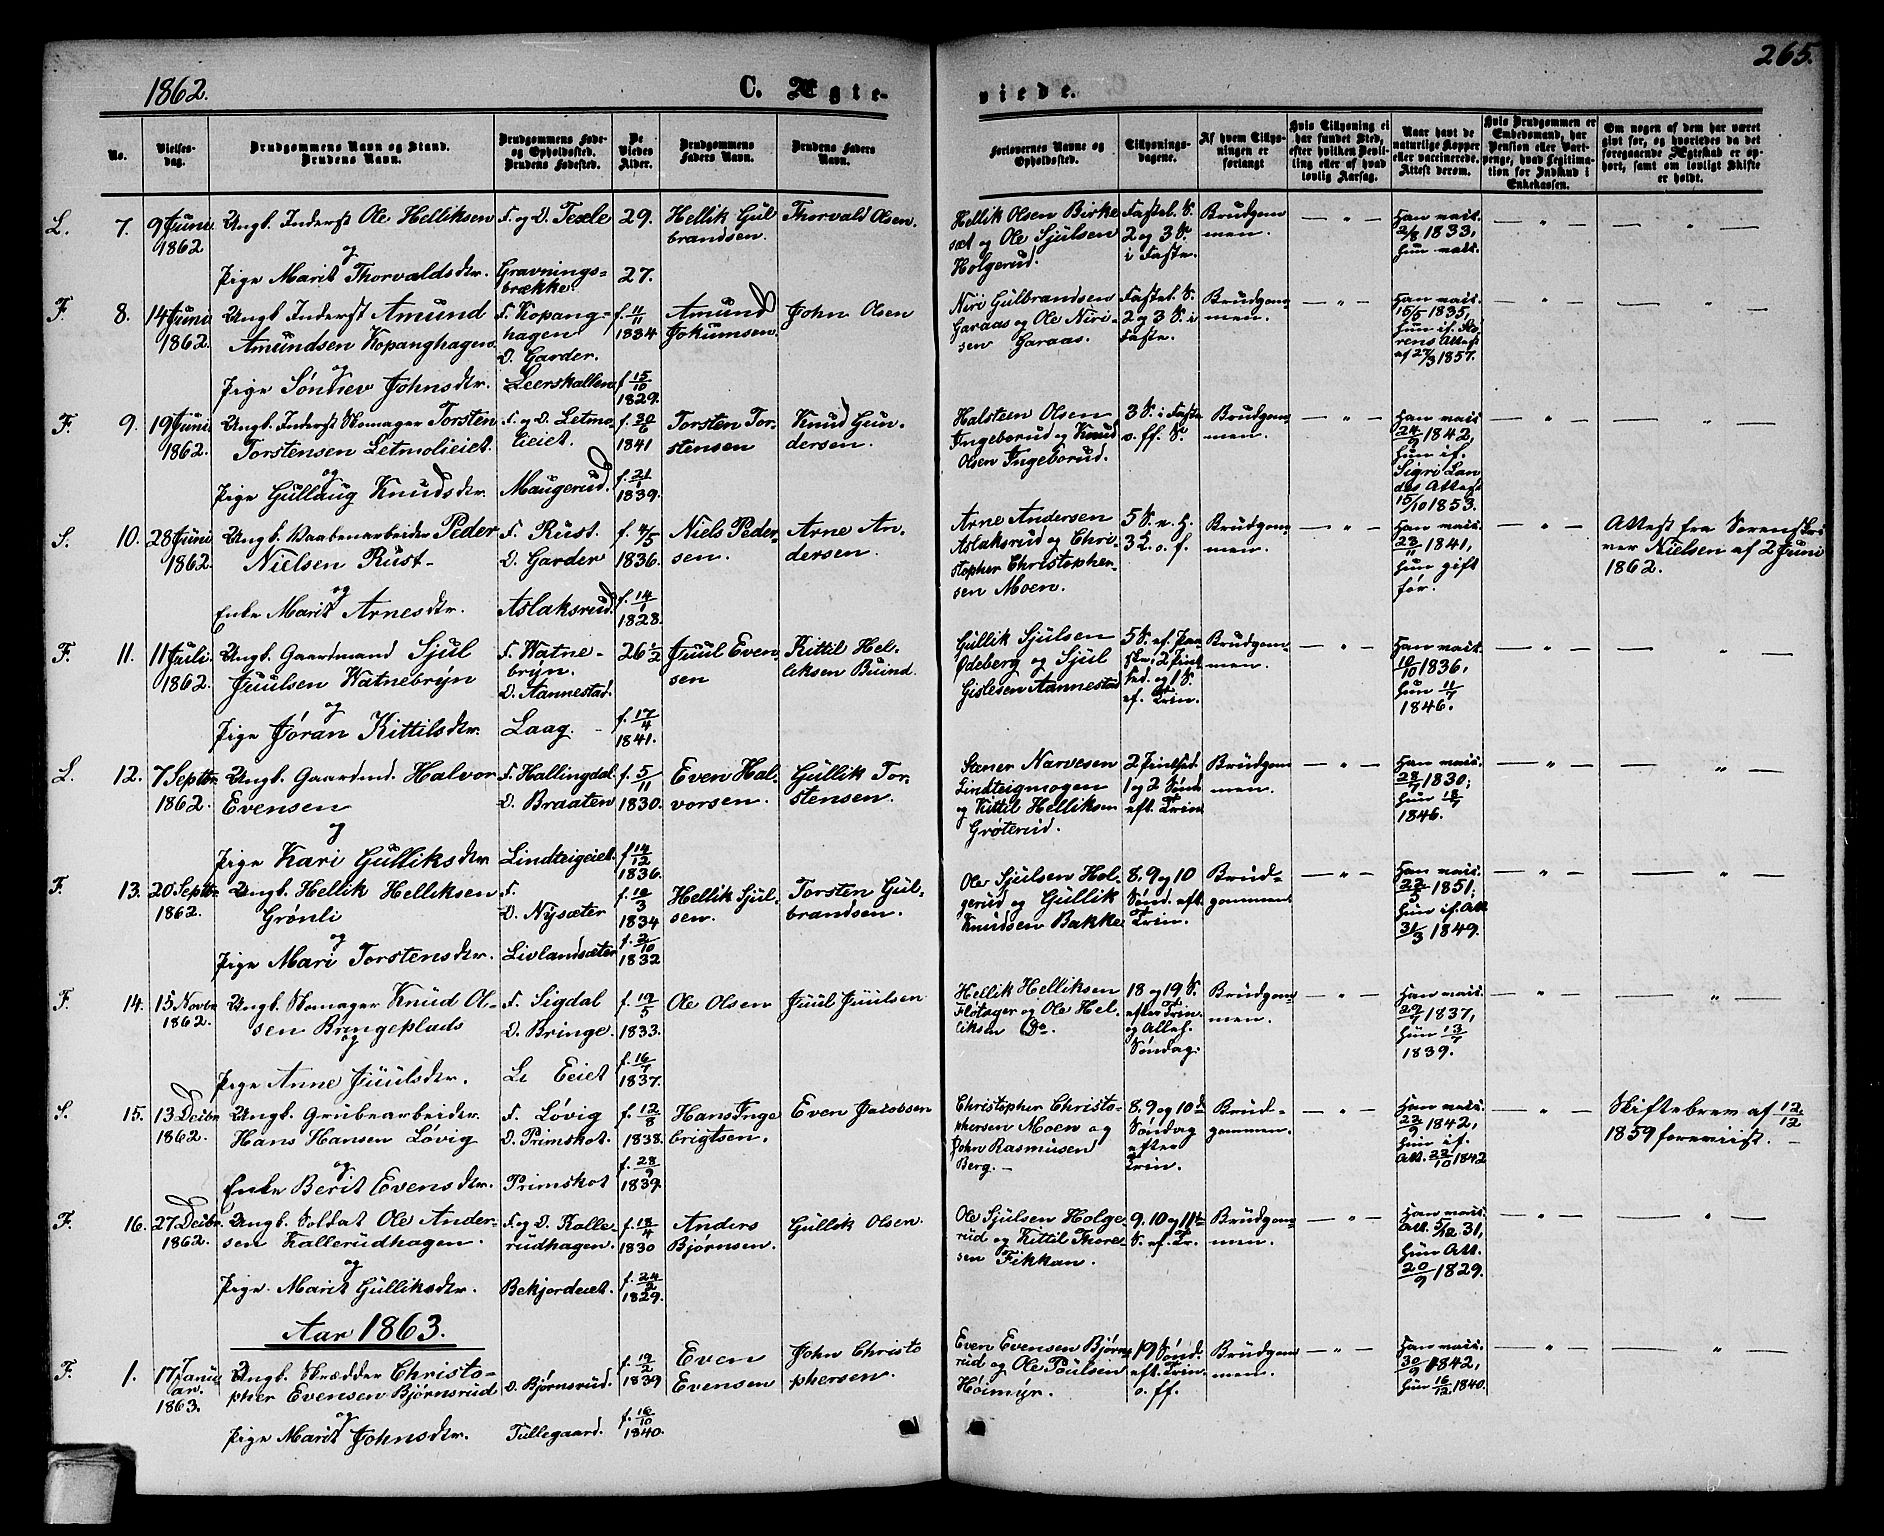 265.
1862.
C. Ægte-
viede.
No.
Vielses-
dag.
Brudgommens Navn og Stand.
Brudens Navn.
Brudgommens Føde-
og Opholdssted.
Brudens Fødested.
De
Viedes
Alder.
Brudgommens
Faders Navn.
Brudens Faders
Navn.
Forlovernes Navne og
Opholdssted.
Tillysnings-
dagene.
Af hvem Tillys-
ningen er
forlangt
Hvis Tillysning ei
har fundet Sted,
efter hvilken Bevil-
ling eller af hvad
lovlig Aarsag.
Naar havt de
naturlige Kopper
eller vaccinerede.
Attest derom.
Hvis Brudgommen er
Embedsmand, har
Pension eller Vart-
penge, hvad Legitima-
tion for Indskud i
Enkekassen.
Om nogen af dem har været
gift før, og hvorledes da det
foregaaende Ægteskab er op-
hørt, samt om lovligt Skifte
er holdt.
L. 7. 9 Juni
1862
Ungk. Inderst Ole Helliksen
og
Pige Marit Thorvaldsdtr.
F. og D. Texle
Gravnings-
brække.
29.
27.
Hellik Gul
brandsen.
Thorvald Olsen.
Hellik Olsen Birke
sæt og Ole Sjulsen
Holgerud.
Fastel. S.
2 og 3 S.
i Faste.
Brudgom
men.
Han vais.
2/8 1833,
hun vais.
F. 8. 14 Juni
1862.
Ungk. Inderst Amund
Amundsen Kopanghagen
og
Pige Sønnev Johnsdtr.
F. Kopang-
hagen
D. Garder.
Leerskallen
f. 4/11
1834
f. 15/10
1829.
Amund
Jokumsen.
John Olsen
Niri Gulbrandsen
Garaas og Ole Niri-
sen Garaas.
Fastel. S.
2 og 3 S. i
Faste.
Brudgom
men.
Han vais.
15/5 1835,
hun if. So
rens Attest
af 27/9 1857.
F. 9. 19 Juni
1862.
Ungk. Inderst Skomager Torsten
Torstensen Letmolieiet.
og
Pige Gullaug Knudsdtr.
F. og D. Letmo-
lieiet.
Maugerud.
f. 30/6
1841
f. 21/1
1839.
Torsten Tor-
stensen
Knud Gun-
dersen.
Halsteen Olsen
Ingeborud og Knud
Olsen Ingeborud.
3 S. i Faste
o. ff. S.
Brudgom
men.
Han vais
24/9 1842,
hun if.
Sigri Lan
des Attest
15/10 1853.
S. 10. 28 Juni
1862.
Ungk. Vaabenarbeider Peder
Nielsen Rust-
og
Enke Marit Arnesdtr.
F. Rust.
D. Garder
Aslaksrud.
f. 4/5
1836.
f. 14/1
1828.
Niels Peder-
sen.
Arne An-
dersen.
Arne Andersen
Aslaksrud og Chri-
stopher Christopher-
sen Moen.
5 S. e. H.
3 L. o. f.
Brudgom
men.
Han vais.
23/11 1841,
hun gift
før.
Attest fra Sorenskri
ver Nielsen af 2 Juni
1862.
F. 11. 11 Juli
1862.
Ungk. Gaardmand Sjul
Juulsen Watnebryn
og
Pige Jøran Kittilsdtr.
F. Watne-
bryn.
D. Aannestad.
Laag.
26 1/2
f. 17/4
1841.
Juul Even-
sen
Kittil Hel-
liksen Buind.
Gullik Sjulsen
Ødeberg og Sjul
Gislesen Aannestad
5 S. ef. Paa
ske, 2 Pint
sed. og 1 S.
ef. Trin.
Brudgom
men.
Han vais.
10/10 1836,
hun 11/7
1846.
L. 12. 7 Septbr
1862.
Ungk. Gaardmd. Halvor
Evensen
og
Pige Kari Gulliksdtr
F. Hallingdal
D. Braaten
Lindteigeiet.
f. 5/11
1830.
f. 14/12
1836.
Even Hal-
vorsen.
Gullik Tor-
stensen.
Stener Narvesen
Lindteigmogen
og Kittil Helliksen
Grøterud.
2 Pintsed.
1 og 2 Sønd
eft. Trin
Brudgom
men.
Han vais.
28/7 1830;
hun 18/7
1846.
F. 13. 20 Septbr
1862.
Ungk. Hellik Helliksen
Grønli
og
Pige Mari Torstensdtr.
F.
D. Nysæter
Livlandsæter
f. 10/3
1834
f. 2/10
1832
Hellik Sjul-
sen.
Torsten Gul-
brandsen.
Ole Sjulsen Hol-
gerud og Gullik
Knudsen Bakke
8. 9 og 10
Sønd. eft.
Trin.
Brud-
gommen
Han vais.
22/3 1851;
hun if. Att
31/3 1849.
F. 14. 15 Novbr
1862.
Ungk. Skomager Knud Ol-
sen Bringeplads
og
Pige Anne Juulsdtr.
F. Sigdal
D. Bringe.
Li Eeiet
f. 19/5
1833.
f. 16/7
1837.
Ole Olsen
Juul Juulsen
Hellik Helliksen
Fløtager og Ole Hel-
liksen Do.
18 og 19 S.
efter Trin.
og Alleh.
Søndag.
Brudgom
men.
Han vais.
29/7 1837,
hun 13/7
1839.
S. 15. 13 Decbr
1862.
Ungk. Grubearbeider
Hans Hansen Løvig
og
Enke Berit Evensdtr.
F. Løvig
D. Primskot.
Primskot
f. 12/8
1838.
f. 28/9
1839.
Hans Inge
brigtsen.
Even Jacobsen
Christopher Christo-
phersen Moen og
John Rasmusen
Berg.-
8. 9 og 10d
Søndag
efter
Trin.
Brud-
gommen.
Han vais.
22/9 1842,
hun if.
Att. 22/10 1842
Skiftebrev af 12/12
1859 forevist.
F. 16. 27 Decbr
1862.
Ungk. Soldat Ole Ander-
sen Kallerudhagen.
og
Pige. Marit Gulliksdtr.
F. og D. Kalle-
rudhagen.
Bekjordeiet.
f. 18/4
1830
f. 24/2
1829.
Anders
Bjørnsen.
Gullik Olsen.
Ole Sjulsen Holge-
rud og Kittil Thore-
sen Fikkan.
9. 10 og 11te
S. ef. Tr.
Brudgom-
men.
Han vais.
Att. 5/12 31,
hun Att.
20/9 1829.
Aar 1863.
F. 1. 17 Janu
ar.
1863.
Ungk. Skrædder Christo-
pher Evensen Bjørnsrud
og
Pige Marit Johnsdtr.
D. Bjørnsrud.
Tullegaard.
f. 19/2
1839
f. 16/10
1840.
Even
Evensen
John Christo
phersen.
Even Evensen Bjørns
rud og Ole Poulsen
Høimyr.
19 Sønd.
eft. Trin.
o. ff.
Brudgom
men.
Han vais.
30/9 1842,
hun 16/12 1840.